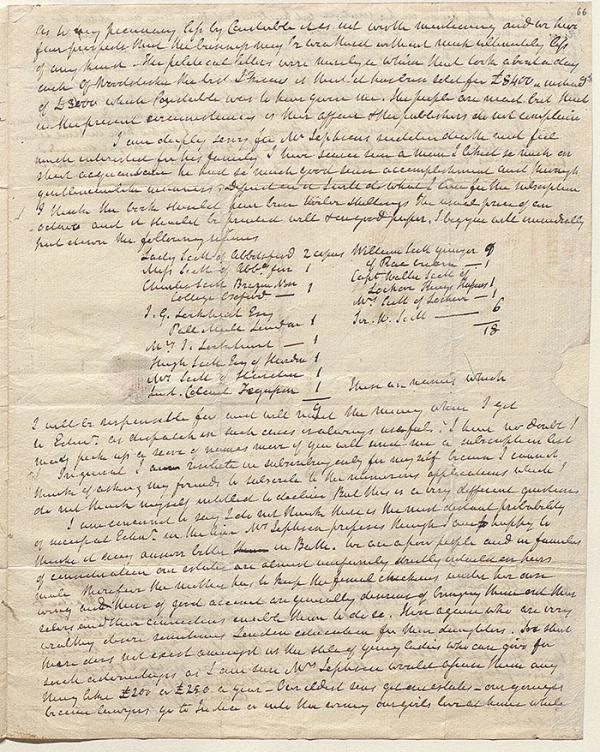 66
As to my pecuniary loss by Constable it is not worth mentioning and we have
fair prospects that the business may be worked without much ultimate loss
of any kind. The political letters were merely a which that took about a day
each. Of Woodstocke the last I know is that it has been sold for £8400 instead
of £3000 which Constable was to have given me. The people are mad but that
in the present circumstances is their affair & the publishers do not complain
I am deeply sorry for Mr Jephsons sudden death and feel
much interested for his family. I have seldom seen a man I liked so much on
short acquaintance he had so much good sense accomplishment and thorough
gentlemanlike manners. Depend on it I will do what I can for the subscription
I think the book should four been twelve shillings the usual price of an
octavo and it should be printed well & on good paper. I beg you will immediately
put down the following names
Lady Scott of Abbotsford 2 copies
Miss Scott of Abbd for 1
Charles Scott Brazen Nose
College Oxford — 1
J. G. Lockhart Esq
Pall Mall London 1
Mrs J. Lockhart — 1
Hugh Scott Esq of Harden 1
Mrs Scott of Harden 1
Lieut. Colonel Ferguson 1
9
William Scott younger 9
of Rae — 1
Capt Walter Scott of
Lochore Kings Hussars 1
Mrs Scott of Lochore — 1
Sir W. Scott — 6
18
These are names which
I will be responsible for and will remit the money when I get
to Edinr. as dispatch in such cases is always useful. I have no doubt I
may pick up a score of names more if you will send me a subscription list
In general I am in subscribing only for myself because I cannot
think of asking my friends to subscribe to the numerous applications which I
do not think myself entitled to decline But this is a very different question
I am concerned to say I do not think there is the most distant probability
of success at Edinr. in the line Mrs Jephson proposes though I am happy to
think it may answer better in Bath. We are a poor people and in families
of consideration our estates are almost uniformly strictly entailed on heirs
male therefore the mother has to keep the female chickens under her own
wing and those of good account are generally desirous of bringing them out them
selves and their connections enable them to do so. Those again who are very
wealthy desire sometimes London education for their daughters. But that
there does not exist amongst us the sale of young ladies who can give for
such advantages as I am sure Mrs Jephson would afford them any
thing like £200 or £250 a year — Our eldest sons get our estates — our youngers
become lawyers go to India or into the army our girls live at home while